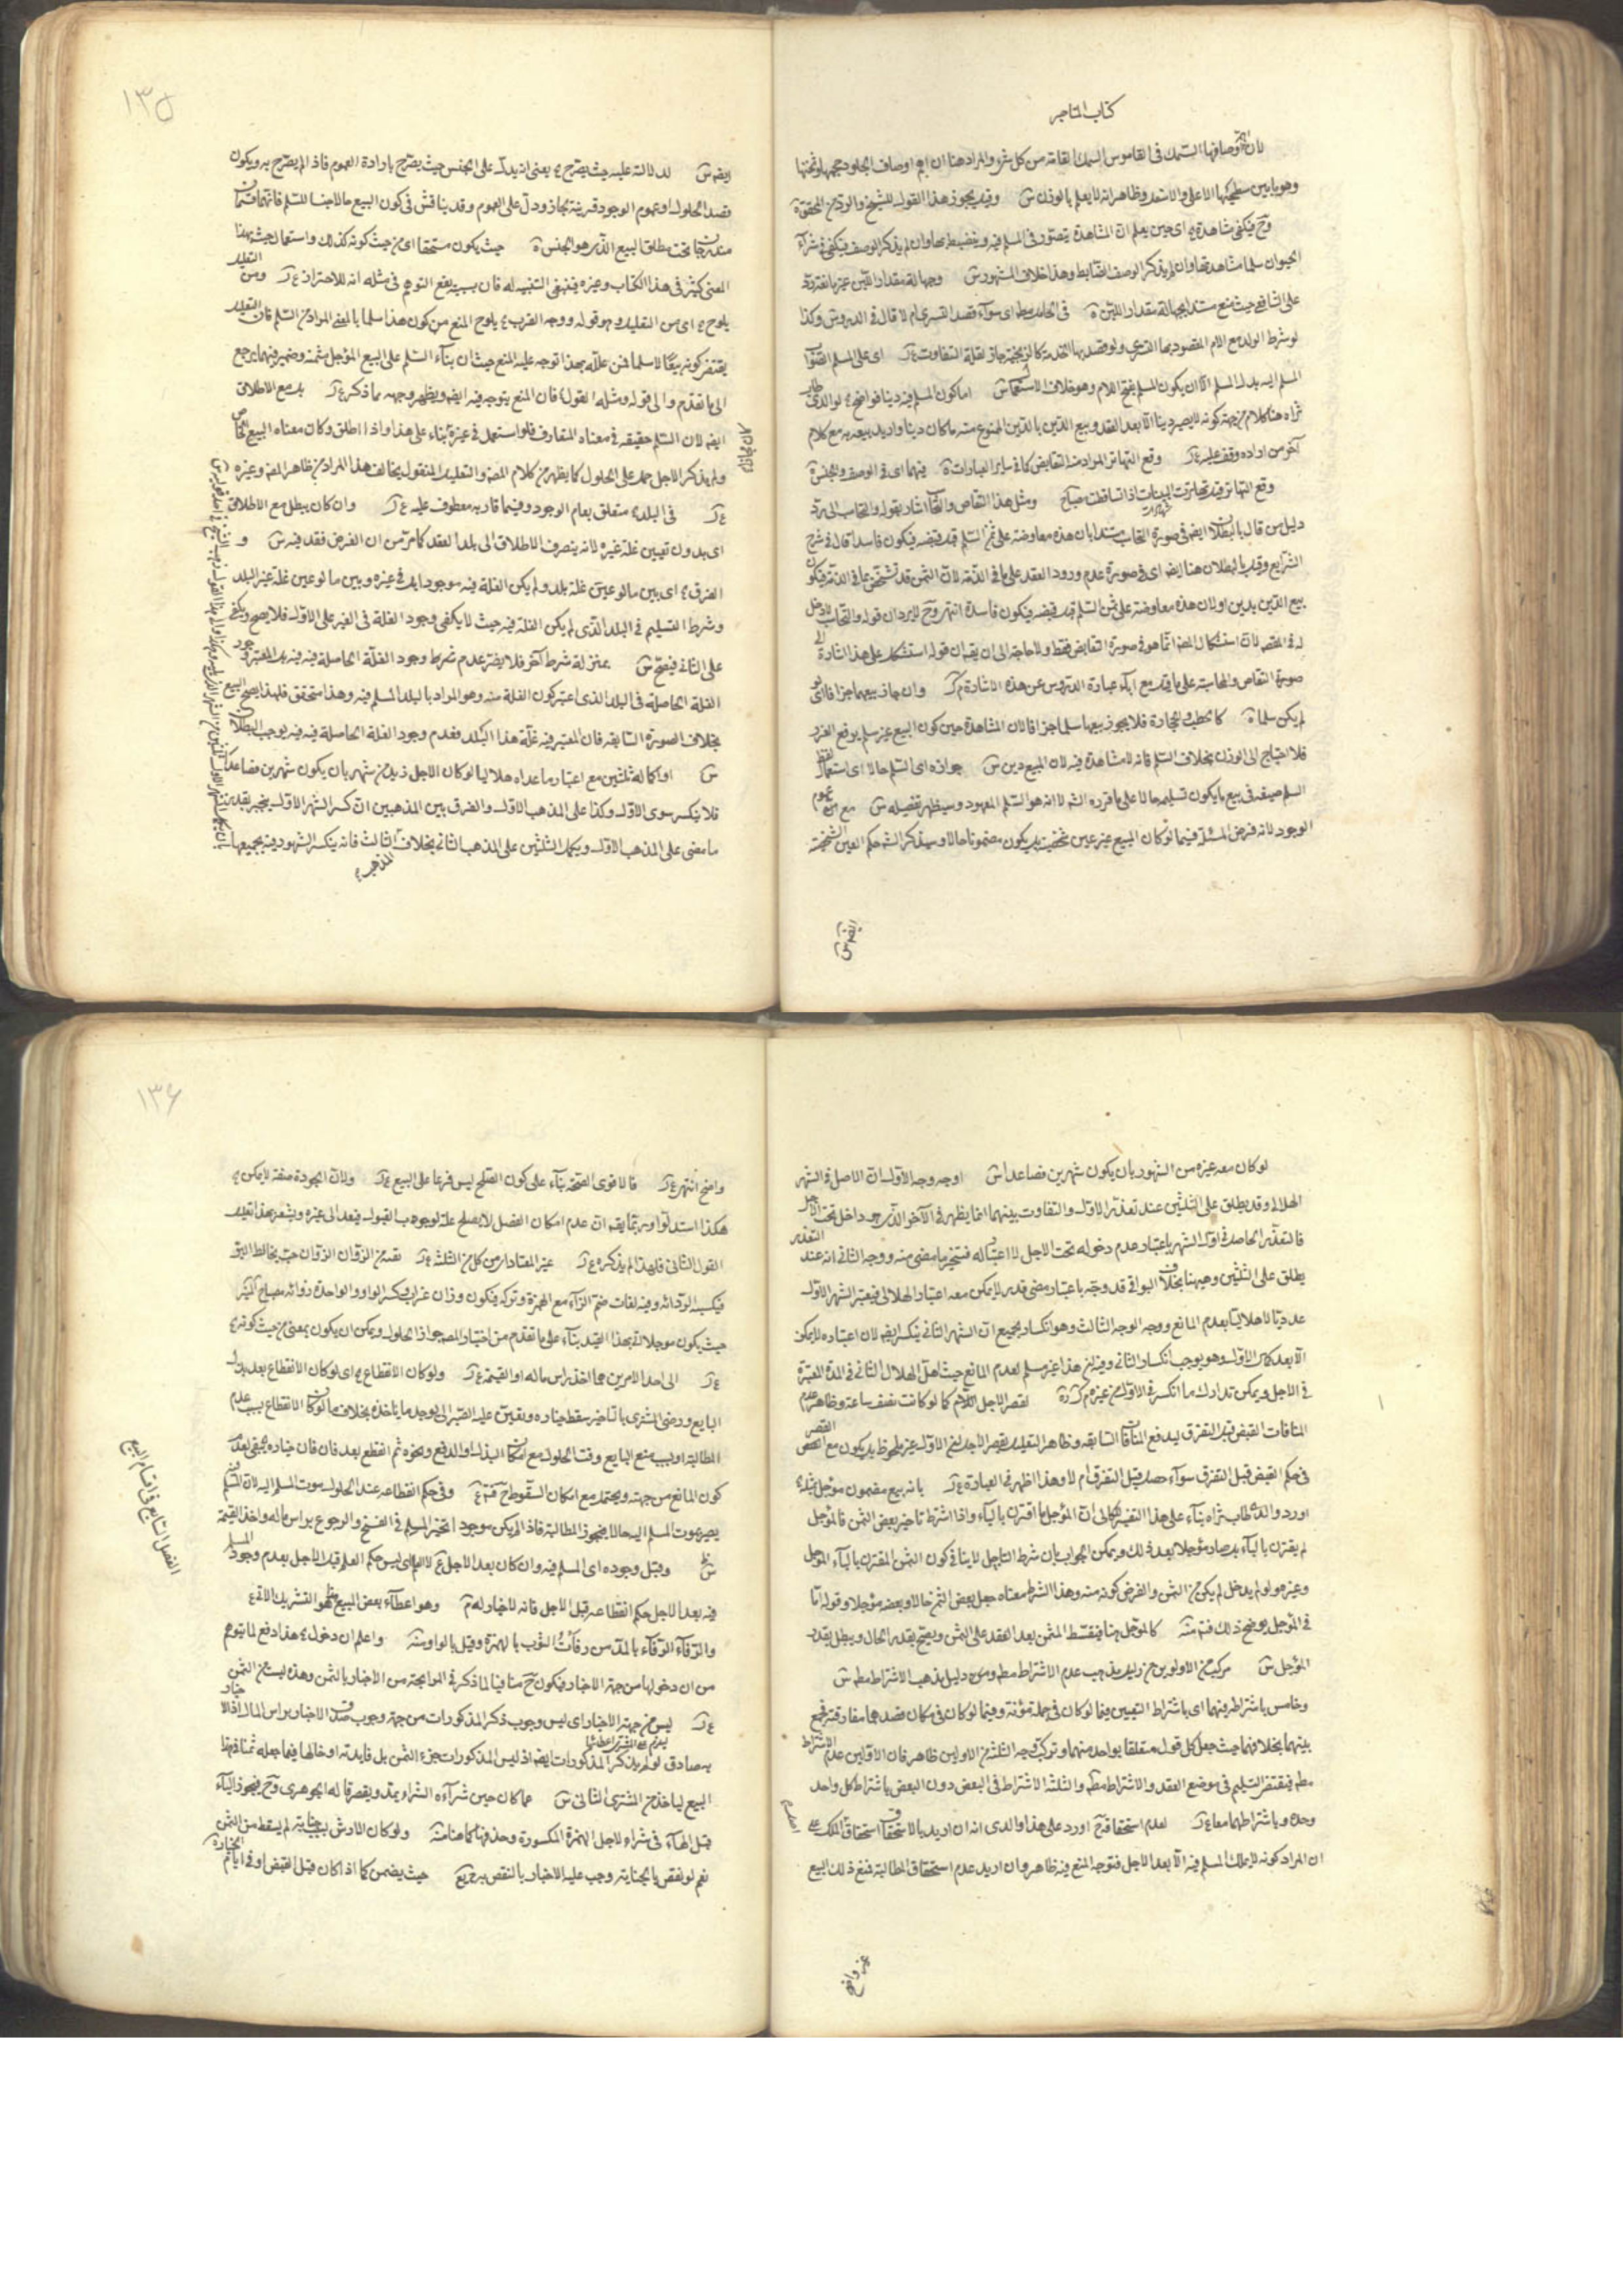 كتاب المتاجر
لان اهم اوصافها السمك فى القاموس السمك القامة من كل شىء والمراد هنا ان اهم اوصاف الجلود حجمها وثخنها
وهو ما بين سطحيها الاعلى والاسفل وظاهر انه لا يعلم بالوزن ش وقيل يجوز هذا القول للشيخ
وح فيكفى مشاهدة اى حين يعلم ان المشاهدة يتصور فى المسلم فيه وينضبط بها وان لم يذكر الوصف فيكفى فى شراء
الحيوان سلما مشاهدتها وان لم يذكر الوصف الضابط وهذا خلاف المشهور ش وجهالة مقدار اللبن غير مانعة رد
على الشافعى حيث منع مستدلا بجهالة مقدار اللبن فى الحامل مط اى سواء قصد التسرى ام لا قال فى الدروس وكذا
لو شرط الولد مع الام المقصود بها التسرى ولو قصد بها الخدمة جاز لقلة التفاوت ع ل اى على المسلم
المسلم اليه بدل المسلم الا ان يكون المسلم بفتح اللام وهو خلاف الاستعمال ش اما كون المسلم فيه دينا فواضح لوالدى طاب
ثراه هنا كلام من جهة كونه لا يصير دينا الا بعد العقد وبيع الدين بالدين الممنوع منه ما كان دينا واريد بيعه به مع كلام
آخر من اراده وقف عليه ع ل وقع التهاتر المراد منه التقابض كما فى ساير العبارات فيهما اى فى الوصف والجنس
وقع التهاتر قيل تهاترت البينات اذا تساقطت مصباح ومثل هذا التقاص والتحاسب اشار بقوله والتحاسب الى رد
دليل من قال بالبطلان ايضا فى صورة التحاسب مستدلا بان هذه معاوضة على ثمن السلم قبل قبضه فيكون فاسدا قال فى شرح
الشرايع وقيل بالبطلان هنا ايضا اى فى صورة عدم ورود العقد على ما فى الذمة لان الثمن قد تشخص بما فى الذمة فيكون
بيع الدين بدين اولان هذه معاوضة على ثمن السلم قبل قبضه فيكون فاسدة انتهى وح لا يرد ان قوله والتحاسب لا دخل
له فى المقصد لان استشكال المصنف انما هو فى صورة التقابض فقط ولا حاجة الى ان يقال ان قوله استشكل على هذا اشارة الى
صورة التقاص والمحاسبة على ما قيل مع اباء عبارة الدروس عن هذه الاشارة م ل وان جاز بيعهما جزافا اى لو
لم يكن سلما كالحطب والحجارة فلا يجوز بيعها سلما جزافا لان المشاهدة حين كون البيع غير سلم يرفع الغرر
فلا احتياج الى الوزن بخلاف السلم فانه لا مشاهدة فيه لان المبيع دين ش جوازه اى السلم حالا اى استعمال لفظ
السلم صيغة فى بيع ما يكون تسليمه حالا على ما قرره الش لا انه هو السلم المعهود وسيظهر تفصيله ش مع عموم
الوجود لانه فرض المسئلة فيما لو كان المبيع غير عين شخصية بل يكون مضمونا حالا وسيذكر الش حكم العين الشخصية
ايضا ش
١٣٥
ايضا ش لدلالته عليه حيث يصرح ع يعنى انه يدل على الجنس حيث يصرح بارادة العموم فاذا لم يصرح به ويكون
قصد الحلول او عموم الوجود قرينة مجاز ودل على العموم وقد يناقش فى كون البيع حالا جنسا للسلم فانهما قسمان
مندرجان تحت مطلق البيع الذى هو الجنس حيث يكون مستحقا اى من حيث كونه كذلك واستعمال حيث بهذا
المعنى كثير فى هذا الكتاب وغيره فينبغى التنبيه له فان بسببه يقع التوهم فى مثله انه للاحتراز ع ل ومن التعليل
يلوح ع اى من التعليل وهو قوله ووجه القرب ع يلوح المنع من كون هذا سلما بالمعنى المراد من السلم فان التعليل
يقتضى كونه بيعا لا سلما فمن علله بهذا توجه عليه المنع حيث ان بناء السلم على البيع المؤجل مثمنه وضمير فيهما يرجع
الى ما تقدم والى قوله ومثله القول ع فان المنع يتوجه فيه ايضا ويظهر وجهه مما ذكر ع ل بل مع الاطلاق
ايضا لان السلم حقيقة فى معناه المتعارف فلو استعمل فى غيره بناء على هذا واذا اطلق وكان معناه البيع الخاص
ولم يذكر الاجل حمل على الحلول كما يظهر من كلام المصنف والتعليل المنقول يخالف هذا المراد من ظاهر المصنف وغيره
ع ل فى البلد ع متعلق بعام الوجود وفيما قاربه معطوف عليه ع ل وان كان يبطل مع الاطلاق
اى بدون تعيين غلة غيره لانه ينصرف الاطلاق الى بلد العقد كما مر من ان الفرض فقد فيه ش و
الفرق ع اى بين ما لو عين غلة بلد ولم يكن الغلة فيه موجودا بل فى غيره وبين ما لو عين غلة غير البلد
وشرط التسليم فى البلد الذى لم يكن الغلة فيه حيث لا يكفى وجود الغلة فى الغير على الاول فلا يصح ويكفى
على الثانى فيصح ش بمنزلة شرط آخر فلا يضر عدم شرط وجود الغلة الحاصلة فيه فيه بل المعتبر وجود
الغلة الحاصلة فى البلد الذى اعتبر كون الغلة منه وهو المراد بالبلد المسلم فيه وهذا متحقق فلهذا يصح البيع
بخلاف الصورة السابقة فان المعتبر فيه غلة هذا البلد فعدم وجود الغلة الحاصلة فيه فيه يوجب البطلان
ش او اكماله ثلثين مع اعتبار ما عداه هلاليا لو كان الاجل ازيد من شهر بان يكون شهرين فصاعدا
فلا ينكسر سوى الاول وكذا على المذهب الاول والفرق بين المذهبين ان كسر الشهر الاول ينجبر بقدر
ما مضى على المذهب الاول ويكمل الثلثين على المذهب الثانى بخلاف الثالث فانه ينكسر الشهور فيه بجميعها
لو كان معه غيره من الشهور بان يكون شهرين فصاعدا ش اوجه وجه الاول ان الاصل فى الشهر
الهلالى وقد يطلق على الثلثين عند تعذر الاول والتفاوت بينهما انما يظهر فى الآخر الذى هو داخل تحت الاجل
فالتعذر الحاصل فى اول الشهر باعتبار عدم دخوله تحت الاجل لا اعتبار له فينجبر ما مضى منه ووجه الثانى انه عند التعذر
يطلق على الثلثين وهيهنا بخلاف البواقى قد وجه باعتبار مضى قدر لا يمكن معه اعتبار الهلالى فيعتبر الشهر الاول
عدديا لا هلاليا بعدم المانع ووجه الوجه الثالث وهو انكسار الجميع ان الشهر الثانى ينكسر ايضا لان اعتباره لا يمكن
الا بعد كمال الاول وهو يوجب انكسار الثانى وفيه ان هذا غير مسلم لعدم المانع حيث اهل الهلال الثانى فى المدة المعتبرة
فى الاجل ويمكن تدارك ما انكسر فى الاول من غيره م ل لقصر الاجل اللام كما لو كانت نصف ساعة وظاهر عدم
المنافات القبض قبل التفرق ليدفع المنافات السابقة وظاهر التعليل بقصر الاجل ان الاول غير ملحوظ بل يكون مع القصر
فى حكم القبض قبل التفرق سواء حصل قبل التفرق ام لا وهذا اظهر فى العبارة ع ل بانه بيع مضمون مؤجل بمثله ع
اورد والدى طاب ثراه بناء على هذا التفسير اشكالا ان المؤجل ما اقترن بالباء واذا اشترط تاخير بعض الثمن فالمؤجل
لم يقترن بالباء بل صار مؤجلا بعد ذلك ويمكن الجواب بان شرط التاجيل لا ينافى كون الثمن المقترن بالباء المؤجل
وغيره ولو لم يدخل لم يكن من الثمن والفرض كونه منه وهذا الشرط معناه جعل بعض الثمن حالا وبعضه مؤجلا وقوله اما
فى المؤجل يوضح ذلك فتم منه كالمؤجل هنا فيقسط المثمن بعد العقد على الثمن ويصح بقدر الحال ويبطل بقدر
المؤجل ش مركب من الاولين من دليل مذهب عدم الاشتراط مط ومن دليل مذهب الاشتراط مط ش
وخامس باشتراطه فيهما اى باشتراط التعيين فيما لو كان فى حمله مؤنة وفيما لو كان فى مكان قصدهما مفارقته فجمع
بينهما بخلافهما حيث جعل كل قول متعلقا بواحد منهما وتركب وجه الثلثة من الاولين ظاهر فان الاولين عدم الاشتراط
مط فيقتضى التسليم فى موضع العقد والاشتراط مط والثلثة الاشتراط فى البعض دون البعض باشتراط كل واحد
وحده وباشتراطهما معا ع ل لعدم استحقاقه ح اورد على هذا والدى انه ان اريد بالاستحقاق استحقاق الملك
ان المراد كونه لا يملك المسلم فيه الا بعد الاجل فتوجه المنع فيه ظاهر وان اريد عدم استحقاق المطالبة فمنع ذلك البيع
غير واضح
١٣٦
واضح انتهى ع ل فالاقوى الصحة بناء على كون الصلح ليس فرعا على البيع ع ل ولان الجودة صفة لا يمكن ع
هكذا استدلوا وربما يقال ان عدم امكان الفصل لا يصلح علة لوجوب القبول فيعدل الى غيره ويشعر بهذا تعليل
القول الثانى فلهذا لم يذكره ع ل غير المعتاد من كل من الثلثة ع ل نقصه من الزوان الزوان حب يخالط البر
فيكسبه الرداءة وفيه لغات ضم الزاء مع الهمزة وتركه فيكون وزان غراب وكسر الواو والواحدة زوانة مصباح المنير
حيث يكون مؤجلا اتى بهذا القيد بناء على ما تقدم من اختيار المصنف جواز الحلول ويمكن ان يكون بمعنى من حيث كونه ع
ع ل الى احد الامرين هما اخذ راس ماله او القيمة ع ل ولو كان الانقطاع ع اى لو كان الانقطاع بعد بذل
البايع ورضى المشترى بالتاخير سقط خياره وتعين عليه الصبر الى يوجد ما ياخذه بخلاف ما لو كان الانقطاع بسبب عدم
المطالبة او بسبب منع البايع وقت الحلول مع امكان البذل والدفع ونحوه ثم انقطع بعد فان خياره يبقى بعد
كون المانع من جهته ويحتمل مع امكان السقوط ح فتم ع وفى حكم انقطاعه عند الحلول موت المسلم اليه لان السلم
يصير بموت المسلم اليه حالا فيجوز المطالبة فاذا لم يكن موجودا تخير المسلم فى الفسخ والرجوع براس ماله واخذ القيمة
ش وقبل وجوده اى المسلم فيه وان كان بعد الاجل ع لا العلم اى ليس حكم العلم قبل الاجل بعدم وجود المسلم
فيه بعد الاجل حكم انقطاعه قبل الاجل فانه لا خيار له ثم وهو اعطاء بعض المبيع هو التشريك الاتى ع
والرفاء الرفاء بالمد من رفأت الثوب بالهمزة وقيل بالواو منه واعلم ان دخول ع هذا دفع لما يتوهم
من ان دخولها من جهة الاخبار فيكون ح منافيا لما ذكر فى المرابحة من الاخبار بالثمن وهذه ليست من الثمن
ع ل ليس من جهة الاخبار اى ليس وجوب ذكر المذكورات من جهة وجوب صدق الاخبار براس المال اذ الاخبار
به صادق لو لم يذكر المذكورات ايضا اذ ليس المذكورات جزء الثمن بل فايدته ادخالها فيما جعله ثمنا فى هذا
البيع لياخذ من المشترى الثانى ش عما كان حين شراءه الشراء يمد ويقصر قاله الجوهرى وح فيجوز الياء
قبل الهاء فى شراءه لاجل الهمزة المكسورة وحذفها كما هنا منه ولو كان الارش بسبب جناية لم يسقط من الثمن
نعم لو نقص بالجناية وجب عليه الاخبار بالنقص يع حيث يضمن كما اذا كان قبل القبض او فى ايام الخيار
الفصل السابع فى اقسام البيع